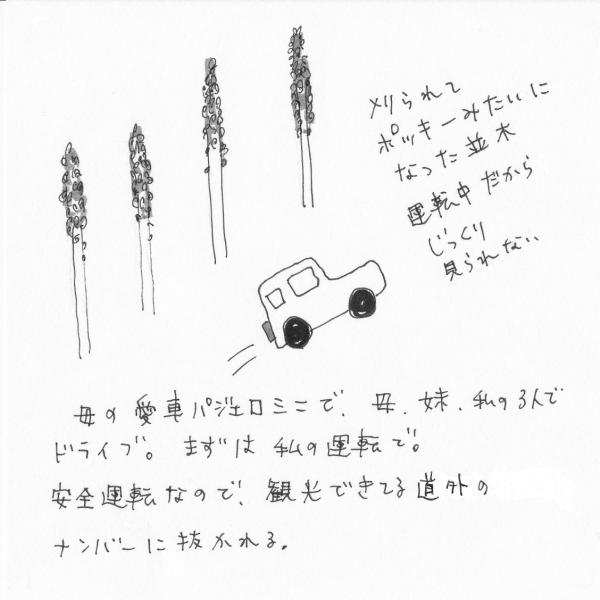 刈られて
ポッキーみたいに
なった並木
運転中だから
じっくり
見られない
母の愛車パジェロミニで、母、妹、私の3人で
ドライブ。まずは私の運転で。
安全運転なので、観光できてる道外の
ナンバーに抜かれる。